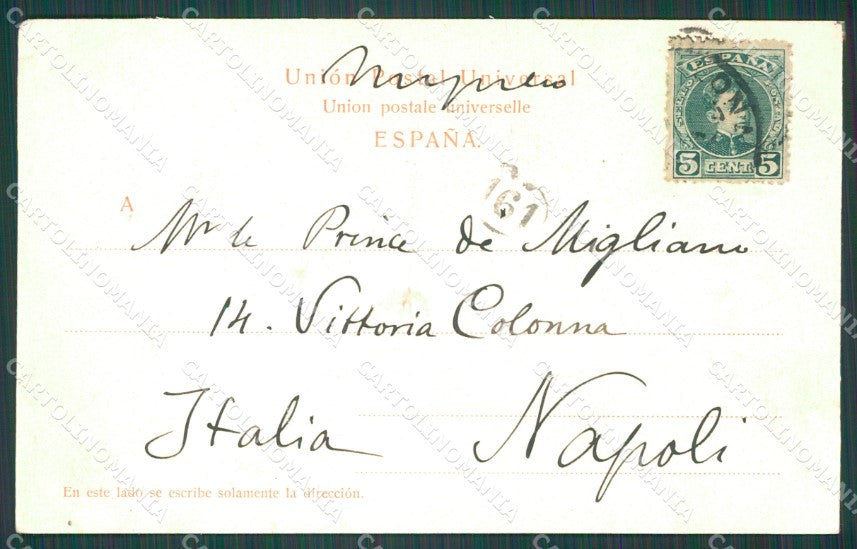 Unión Postal Universal
Union postale universelle
ESPAÑA
ESPAÑA
5 CENT 5
161
A
Mr le Prince de Migliano
14. Vittoria Colonna
Italia Napoli
En este lado se escribe solamente la dirección.
CARTOLINOMANIA